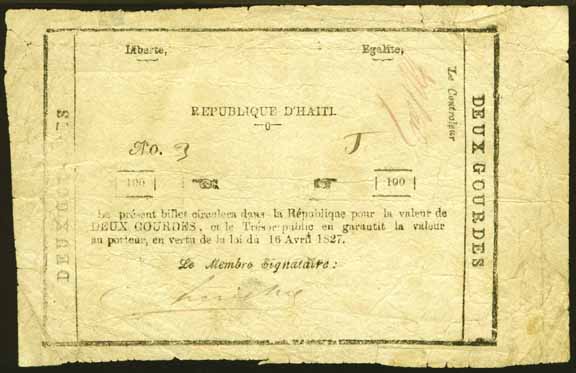 Liberte, Egalite,
REPUBLIQUE D'HAITI.
No. 3 J
100 100
Le présent billet circulera dans la République pour la valeur de
DEUX GOURDES, et le Trésor public en garantit la valeur
au porteur, en vertu de la loi du 16 Avril 1827.
Le Membre Signataire:
Le Controleur
DEUX GOURDES
DEUX GOURDES